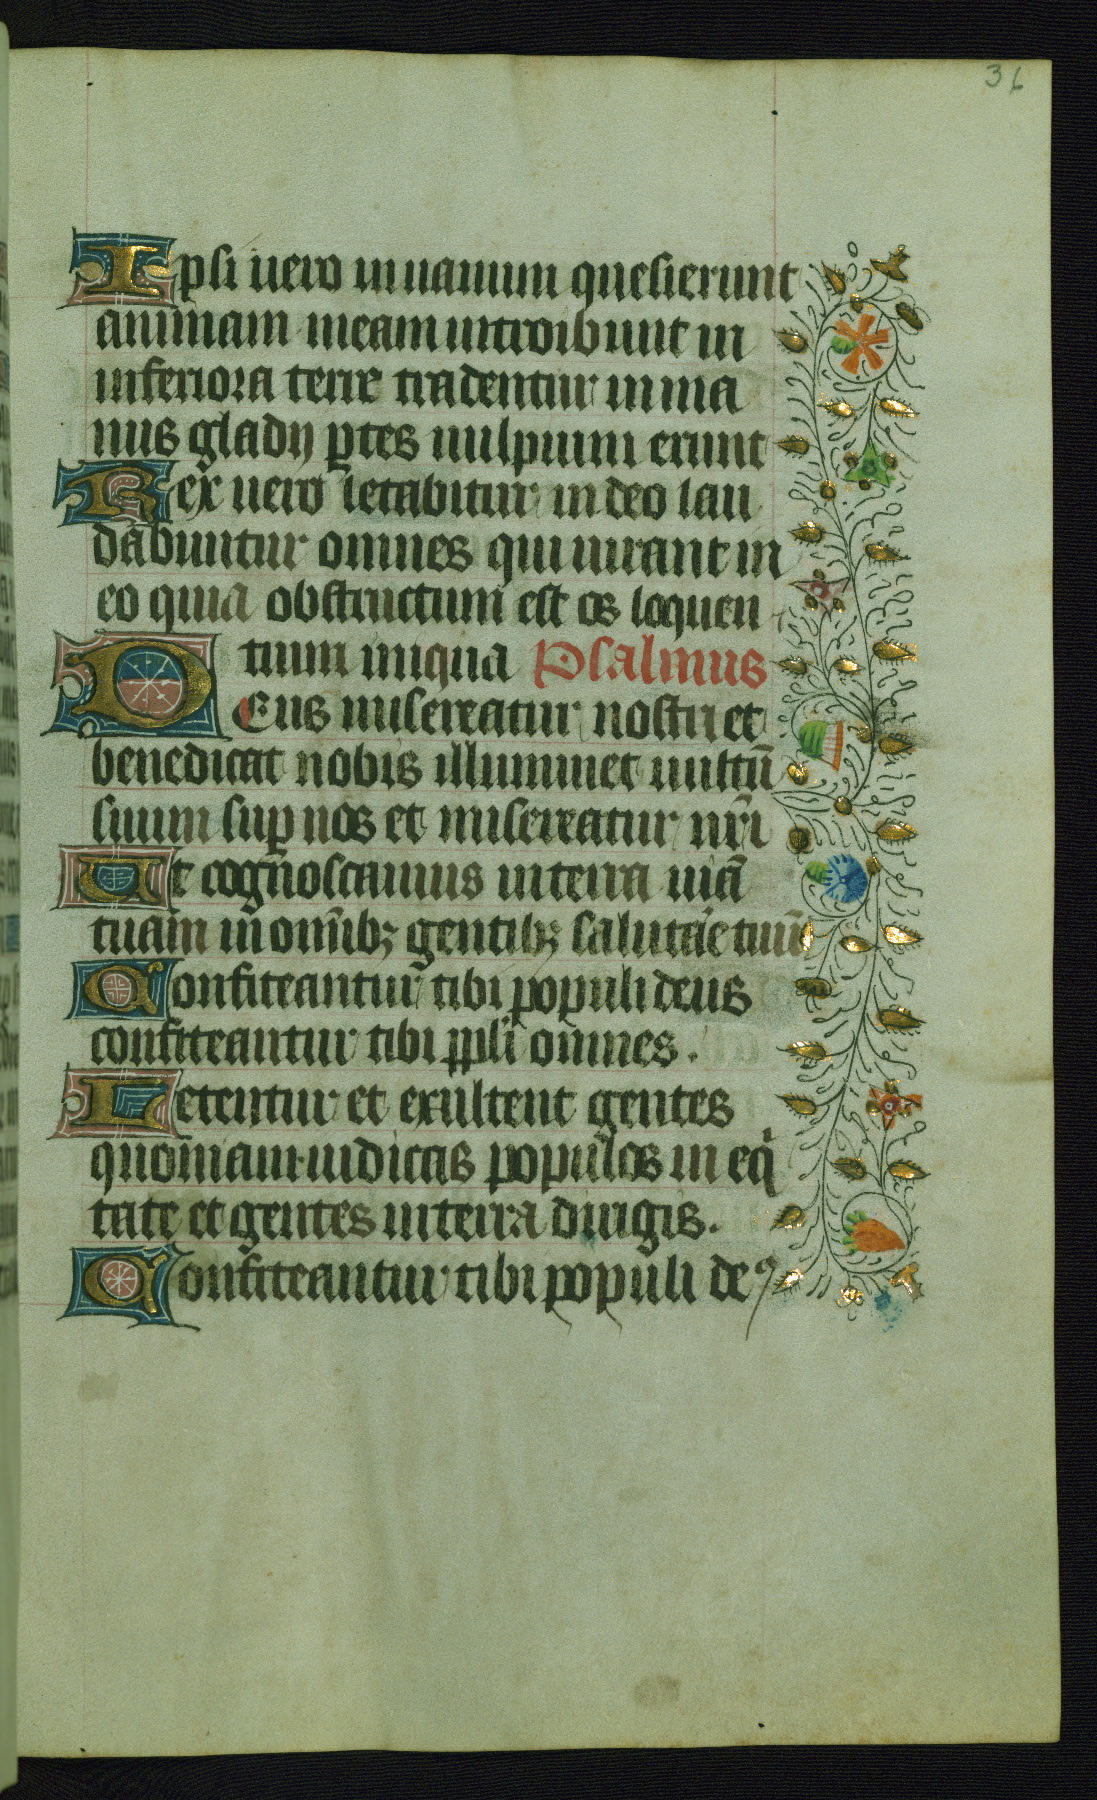 36
Ipsi uero in uanum quesierunt
animam meam introibunt in
inferiora terre tradentur in ma
nus gladij ptes uulpium erunt
Rex uero letabitur in deo lau
dabuntur omnes qui iurant in
eo quia obstructum est os loquen
tium iniqua Psalmus
Deus misereatur nostri et
benedicat nobis illuminet uultū
suum sup nos et misereatur nr̄i
Ut cognoscamus in terra uiā
tuam in om̄ibꝫ gentibꝫ salutāe tuū
Confiteantur tibi populi deus
confiteantur tibi ppl̄i omnes .
Letentur et exultent gentes
quoniam iudicas populos in eq
tate et gentes in terra dirigis .
Confiteantur tibi populi deꝰ